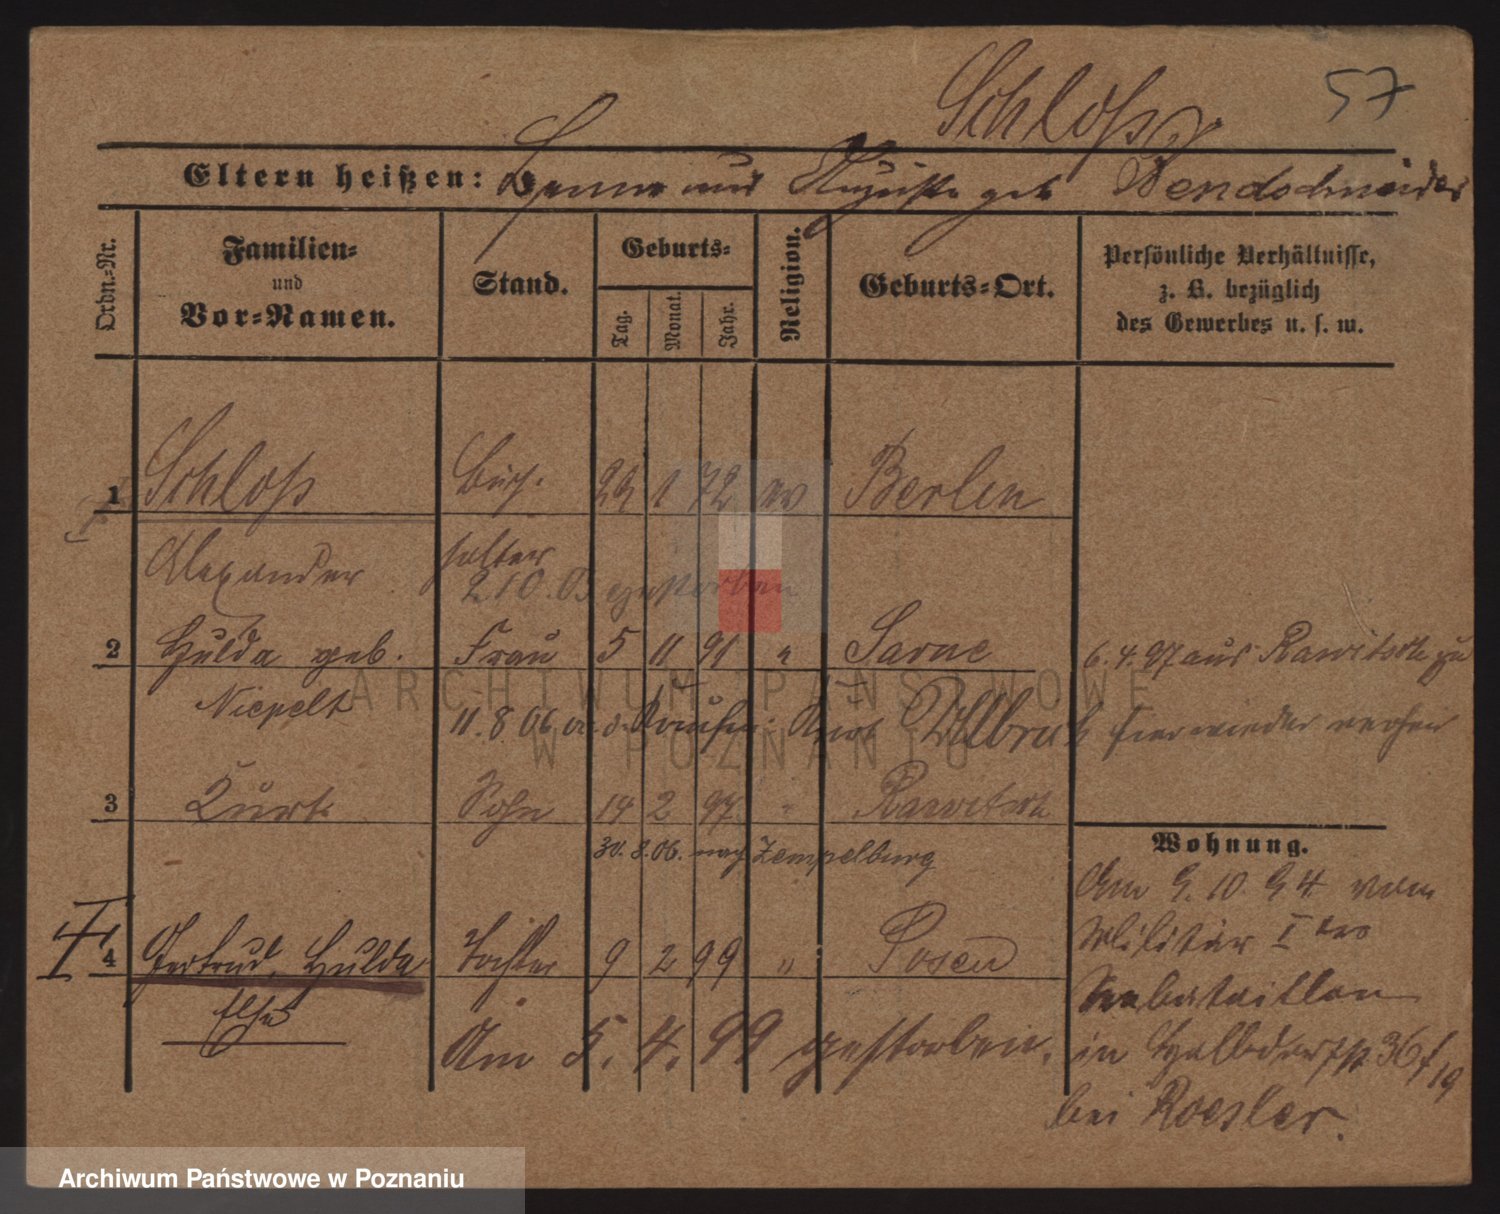 57
Schloß
Eltern heißen: Benno und Auguste geb. Wendschneider
Ordn.-Nr.
Familien-
und
Vor-Namen.
Stand.
Geburts-
Tag.
Monat.
Jahr.
Religion.
Geburts-Ort.
Persönliche Verhältnisse,
z. B. bezüglich
des Gewerbes u. s. w.
1 Schloß Buch- 1 72 ev Berlin
Alexander halter
2.10.05 gestorben
2 Hulda geb. Frau 5 11 91 " Sarne 6.4.97 aus Rawitsch zu
Niepelt
11.8.06 Kurt Wllbruch hier wieder
3 Kurt Sohn 14 2 97 " Rawitsch
30.8.06. nach Zempelburg
4 Gertrud, Hulda Tochter 9 2 99 " Posen
Else
Am 5. 4. 99 gestorben.
Wohnung.
Am 9. 10. 94 vom
Militär I des
Seebataillon
in Halbdorfstr 36 f 19
bei Roesler.
ARCHIWUM PAŃSTWOWE
W POZNANIU
Archiwum Państwowe w Poznaniu